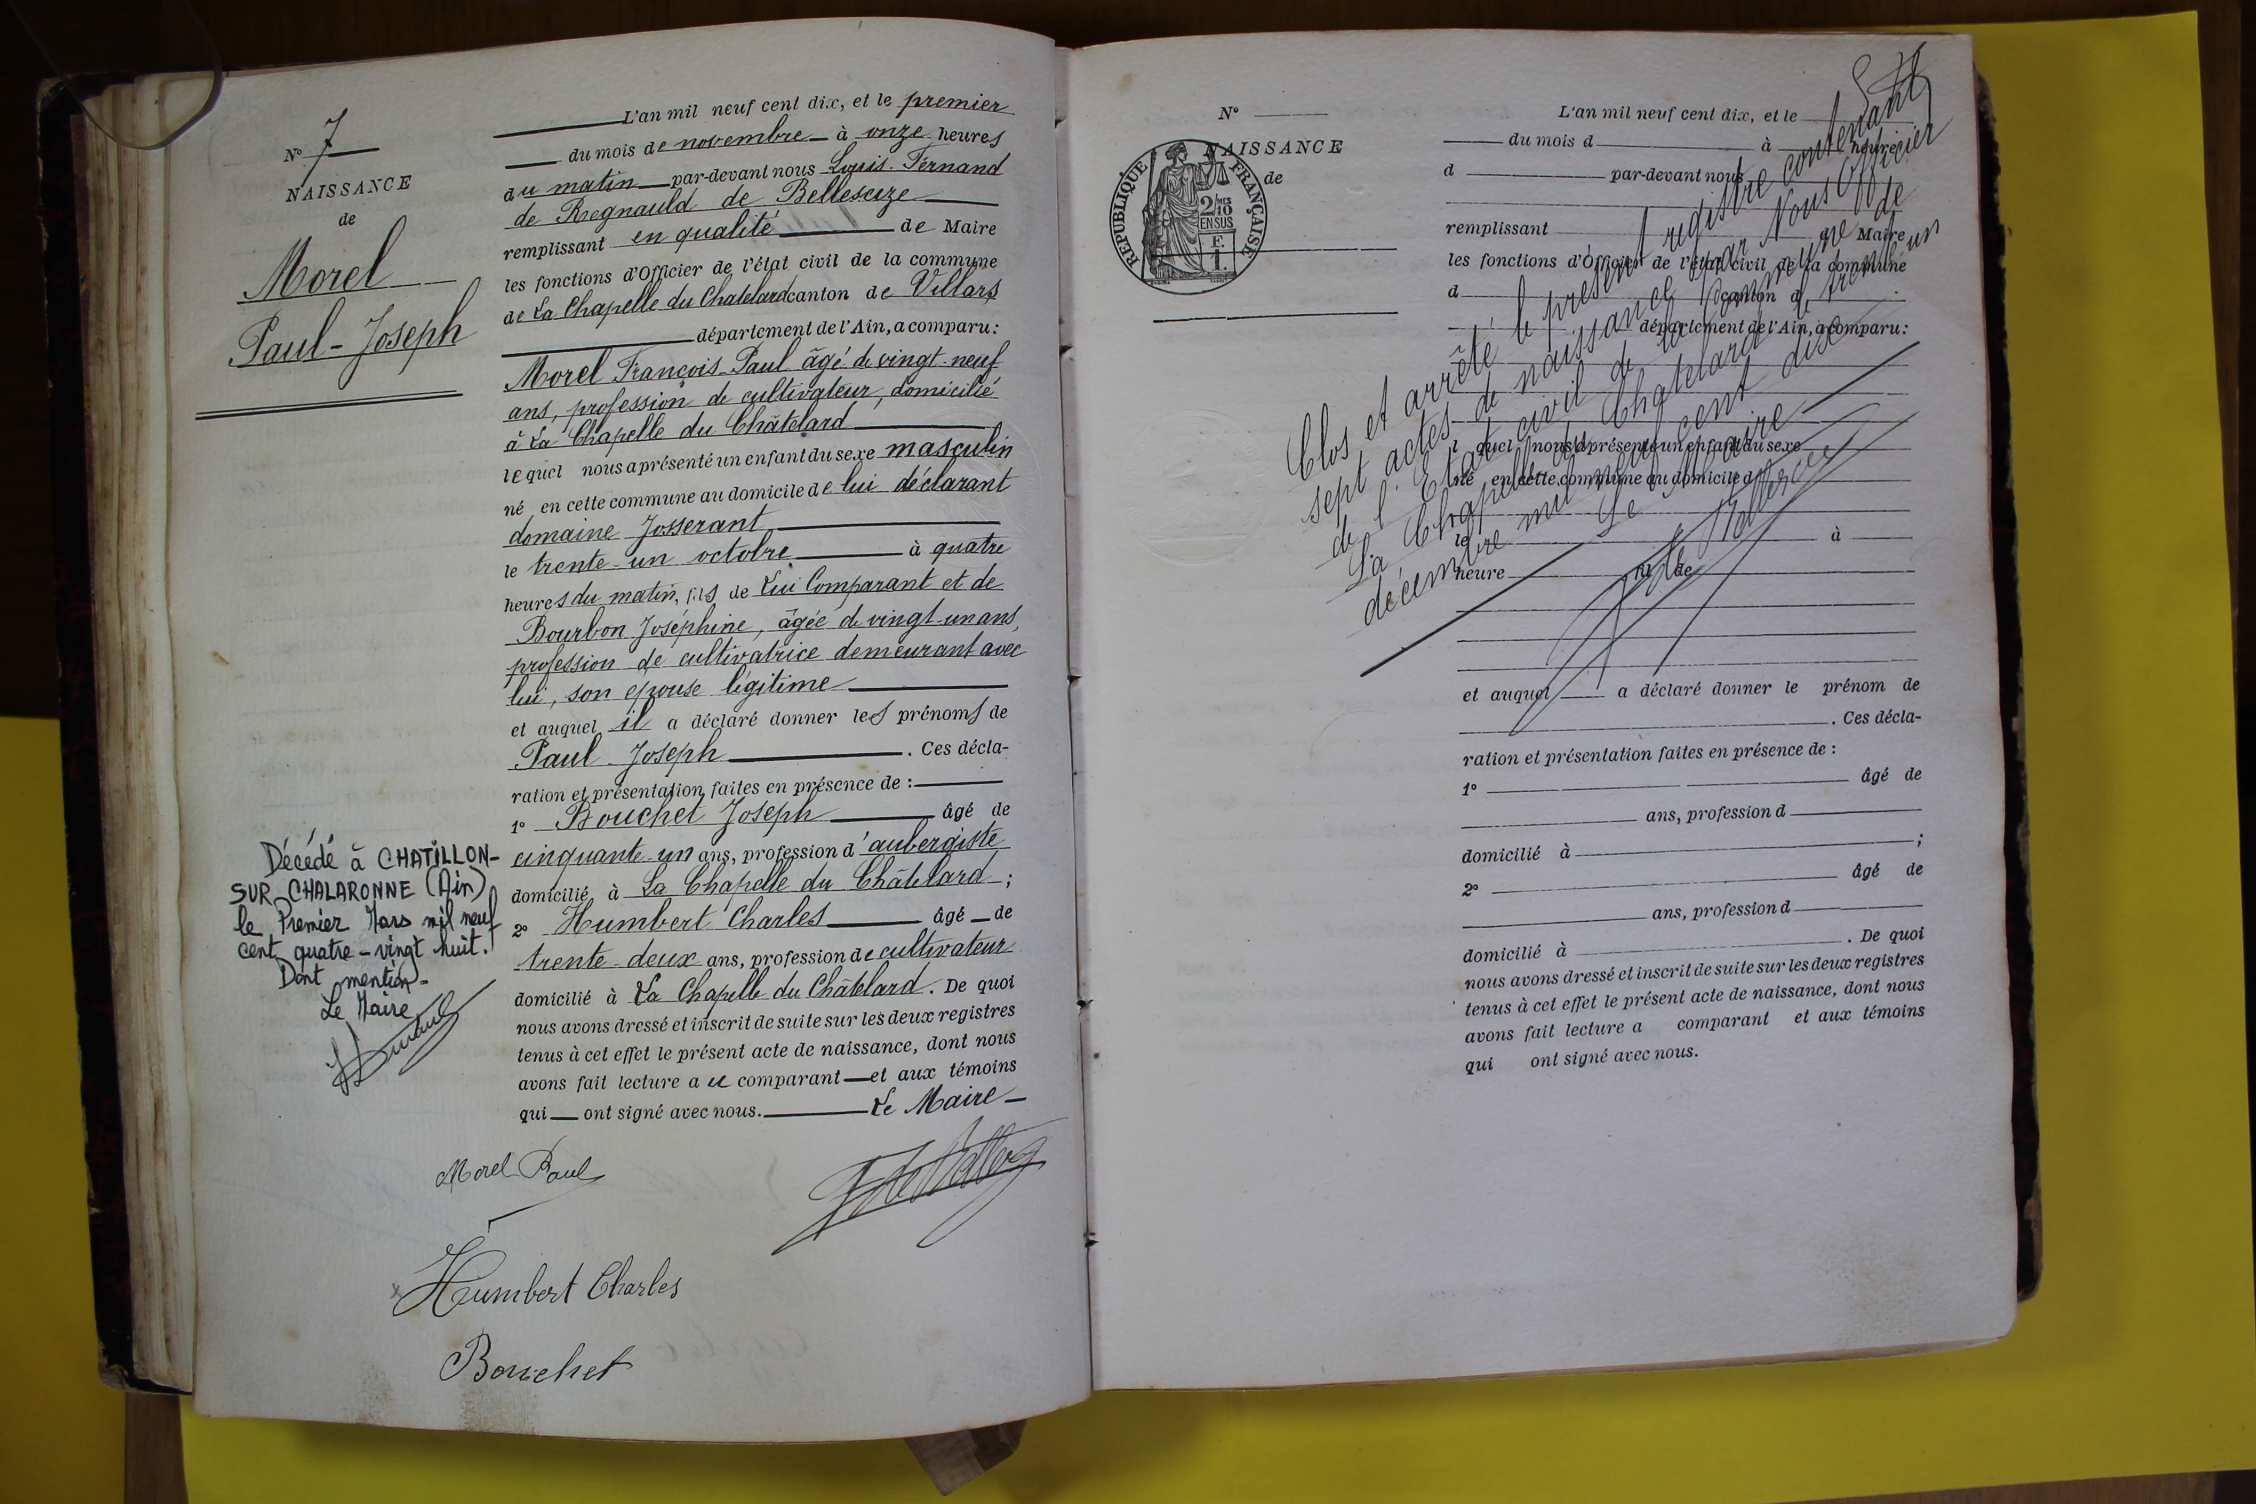 N° 7
NAISSANCE
de
Morel
Paul-Joseph
L'an mil neuf cent dix, et le premier
du mois de novembre à onze heures
du matin par-devant nous Louis-Fernand
de Regnauld de Bellescize
remplissant en qualité de Maire
les fonctions d'Officier de l'état civil de la commune
de La Chapelle du Chatelard canton de Villars
département de l'Ain, a comparu:
Morel François-Paul âgé de vingt-neuf
ans, profession de cultivateur, domicilié
à La Chapelle du Châtelard
lequel nous a présenté un enfant du sexe masculin
né en cette commune au domicile de lui déclarant
domaine Josserant
le trente-un octobre à quatre
heures du matin, fils de Lui Comparant et de
Bourbon Joséphine, âgée de vingt-un ans,
profession de cultivatrice demeurant avec
lui, son épouse légitime
et auquel il a déclaré donner les prénoms de
Paul Joseph . Ces décla-
ration et présentation faites en présence de :
1° Bouchet Joseph âgé de
cinquante-un ans, profession d'aubergiste
domicilié à La Chapelle du Châtelard ;
2° Humbert Charles âgé de
trente-deux ans, profession de cultivateur
domicilié à La Chapelle du Châtelard. De quoi
nous avons dressé et inscrit de suite sur les deux registres
tenus à cet effet le présent acte de naissance, dont nous
avons fait lecture au comparant et aux témoins
qui ont signé avec nous. Le Maire
Décédé à CHATILLON-
SUR CHALARONNE (Ain)
le Premier Mars mil neuf
cent quatre-vingt huit.
Dont mention-
Le Maire
Morel Paul
Humbert Charles
Bouchet
N°
NAISSANCE
de
RÉPUBLIQUE FRANÇAISE
2/10 MES
EN SUS
F.
1.
L'an mil neuf cent dix, et le
du mois d à heure
d par-devant nous
remplissant d Maire
les fonctions d'Officier de l'état civil de la commune
d canton d
département de l'Ain, a comparu:
l quel nous a présenté un enfant du sexe
né en cette commune au domicile d
le à
heure fil de
et auquel a déclaré donner le prénom de
. Ces décla-
ration et présentation faites en présence de :
1° âgé de
ans, profession d
domicilié à ;
2° âgé de
ans, profession d
domicilié à . De quoi
nous avons dressé et inscrit de suite sur les deux registres
tenus à cet effet le présent acte de naissance, dont nous
avons fait lecture a comparant et aux témoins
qui ont signé avec nous.
Clos et arrêté le présent registre contenant
sept actes de naissance par Nous Officier
de l'Etat civil de la Commune de
La Chapelle du Chatelard le trente un
décembre mil neuf cent dix
Le Maire